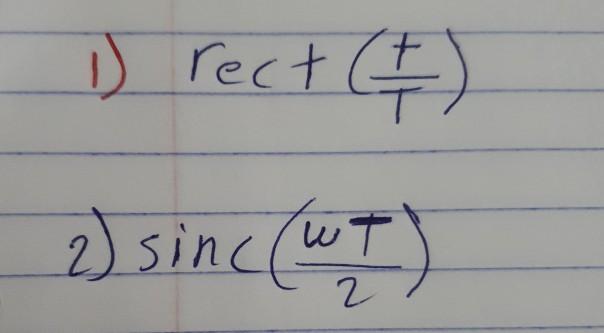 1) rect(t/T)
2) sinc(wT/2)